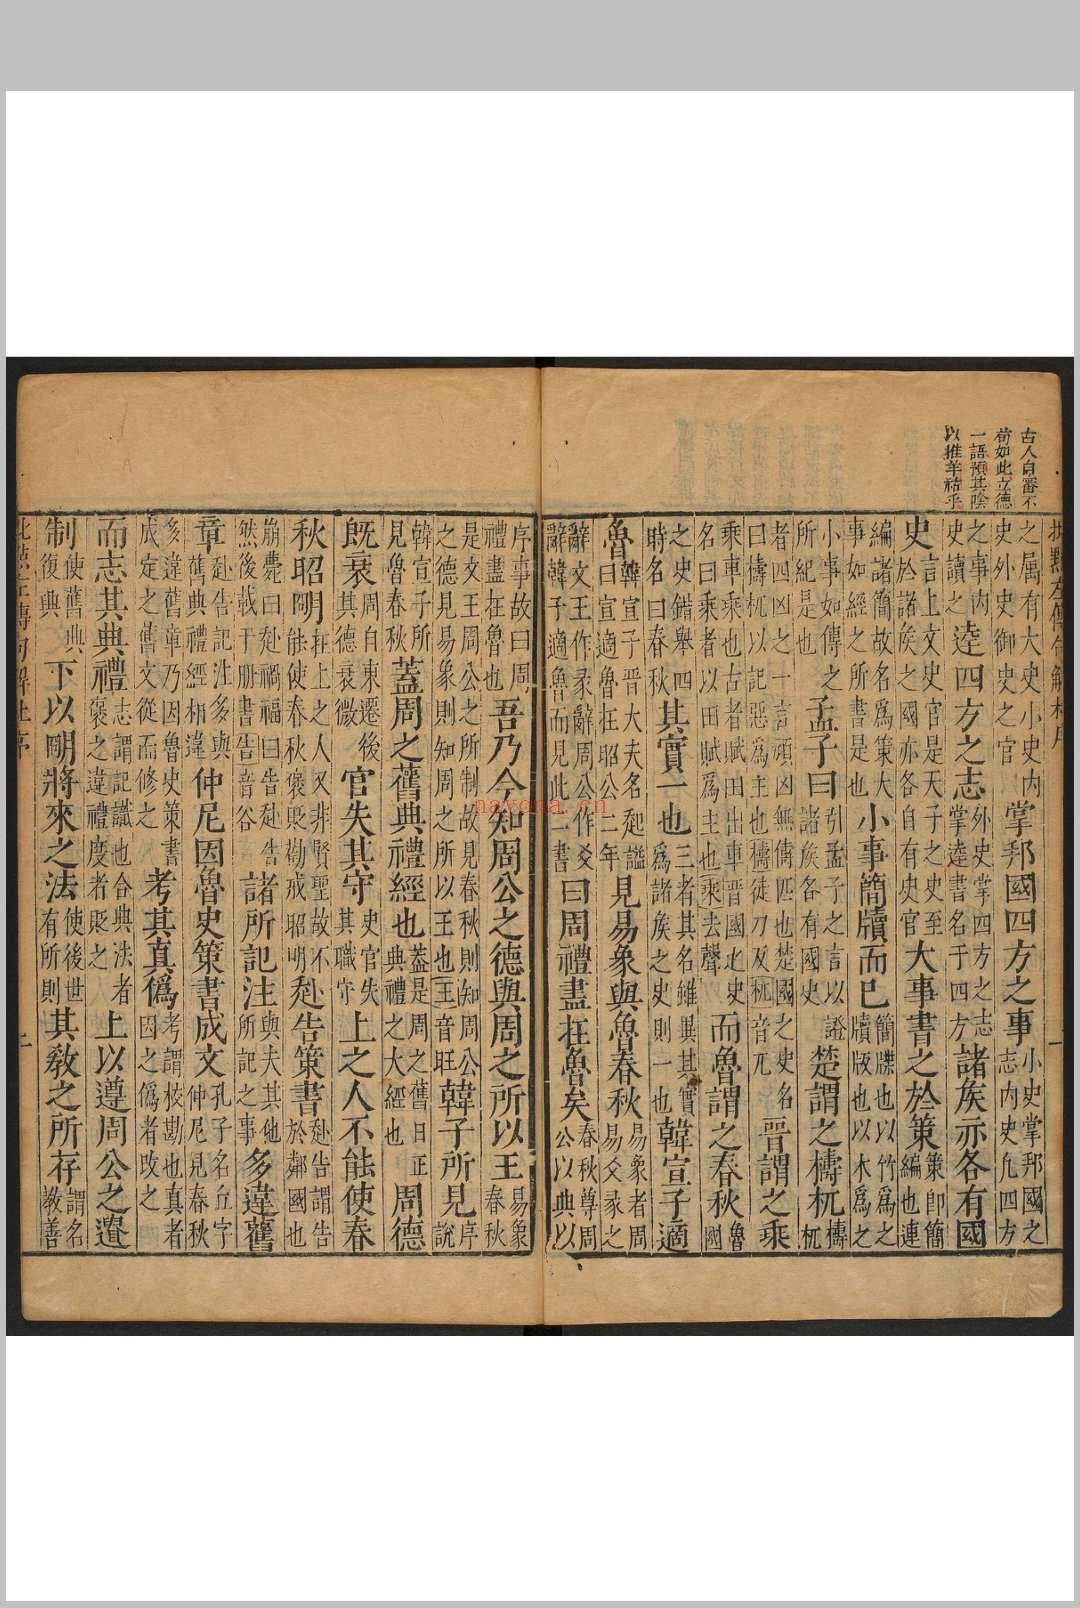 古人自審不
苟如此立德
一語預其陰
之属有大史小史内史外史御史之官掌邦國四方之事小史掌邦國之志内史凡四方
之事内史讀之逹四方之志外史掌四方之志掌逹書名于四方諸矦亦各有國
史言上文史官是天子之史至於諸矦之國亦各自有史官大事書之於策策即簡編也連
編諸簡故名爲策大事如經之所書是也小事簡牘而已簡牒也以竹爲之牘版也以木爲之
小事如傳之所紀是也孟子曰引孟子之言以證諸矦各有國史楚謂之檮杌檮杌
者四凶之一言頑凶無儔匹也楚國之史名曰檮杌以記惡爲主也檮徒刀反杌音兀晋謂之乘
乘車乘也古者賦田出車晋國之史名曰乘者以田賦爲主也乘去聲而魯謂之春秋魯國
之史錯舉四時名曰春秋其實一也三者其名雖異其實爲諸矦之史則一也韓宣子適
魯韓宣子晋大夫名起謚曰宣適魯在昭公二年見易象與魯春秋易象者周易爻彖之
辭文王作彖辭周公作爻辭韓子適魯而見此二書曰周禮盡在魯矣春秋尊周公以典以
序事故曰周禮盡在魯也吾乃今知周公之德與周之所以王易象春秋
是文王周公之所制故見春秋則知周公之德見易象則知周之所以王也王音旺韓子所見序說
韓宣子所見魯春秋蓋周之舊典禮經也蓋是周之舊日正典禮之大經也周德
既衰周自東遷後其德衰微官失其守史官失其職守上之人不能使春
秋昭明在上之人又非賢聖故不能使春秋褒貶勸戒昭明赴告策書赴告謂告於鄰國也
崩薨曰赴禍福曰告赴告然後載于册書告音谷諸所記注與夫其他所記之事多違舊
章赴告記注多與舊典禮經相違仲尼因魯史策書成文孔子名丘字仲尼見春秋
多違舊章乃因魯史策書成定之舊文從而修之考其真僞考謂校勘也真者因之僞者改之
而志其典禮志謂記識也合典法者褒之違禮度者貶之上以遵周公之遺
制使舊典復典下以明將來之法使後世有所則其教之所存謂名教善